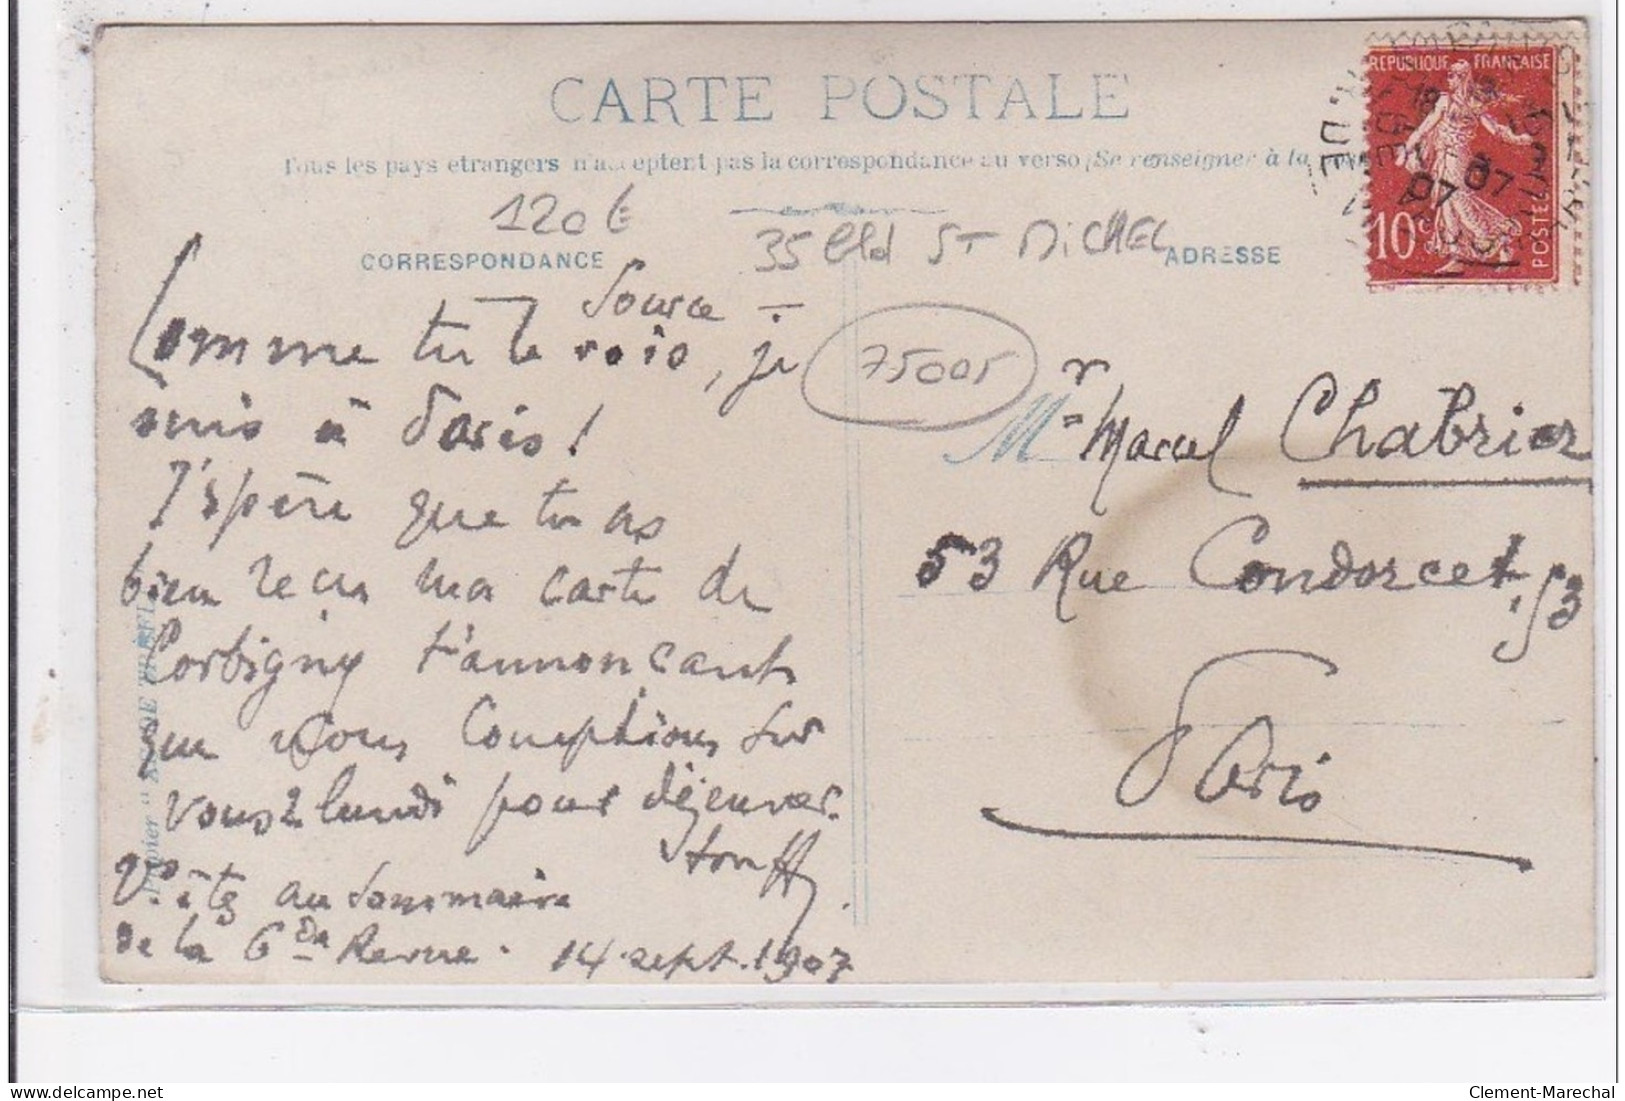 CARTE POSTALE
Tous les pays étrangers n'acceptent pas la correspondance au verso (Se renseigner à la
120 €
35 Bld ST MICHEL
CORRESPONDANCE
ADRESSE
REPUBLIQUE FRANÇAISE
10 c
POSTES
Source
Comme tu le vois, je
suis à Paris !
75005
J'espère que tu as
bien reçu ma carte de
Corbigny t'annonçant
que nous comptions sur
vous 2 lundi pour déjeuner.
V. êtes au Sommaire
de la Gde Revue. 14 sept. 1907
Mr Marcel Chabrier
53 Rue Condorcet, 53
Paris
Clement-Marechal